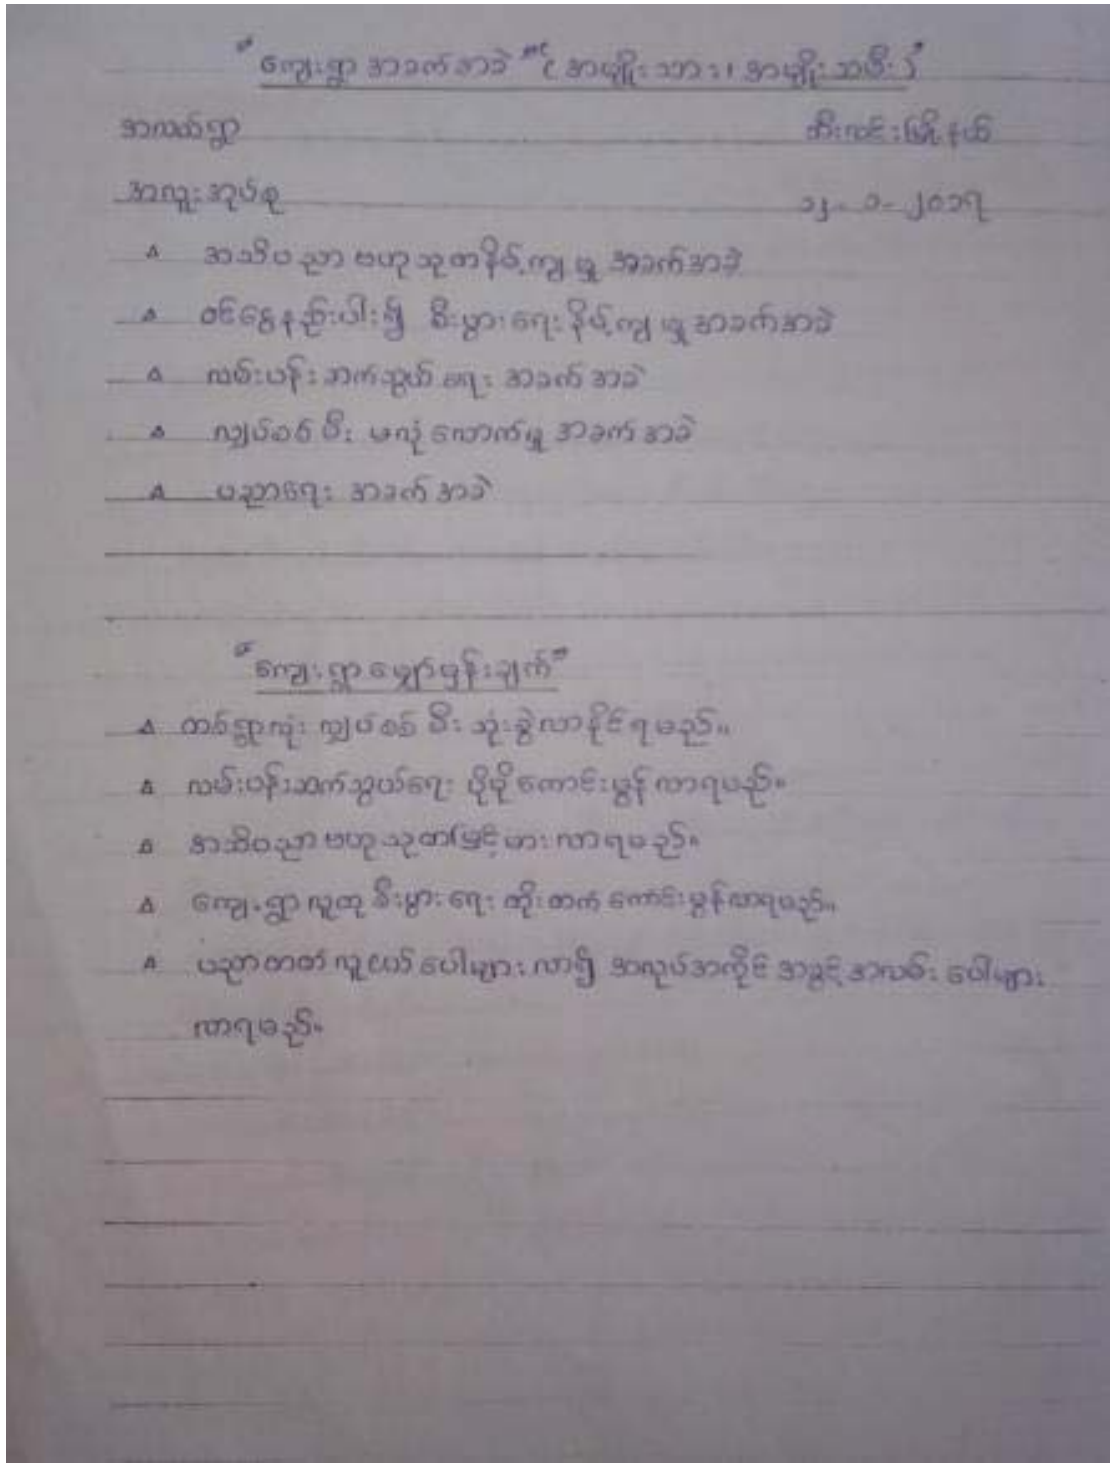 "ကျေးရွာ အခက်အခဲ" ( အမျိုးသား၊ အမျိုးသမီး )
အလယ်ရွာ ဘီးလင်းမြို့နယ်
အလူးအုပ်စု ၁၂-၁-၂၀၁၇
∆ အသိပညာ ဗဟုသုတနိမ့်ကျမှု အခက်အခဲ
∆ ဝင်ငွေနည်းပါး၍ စီးပွားရေး နိမ့်ကျမှု အခက်အခဲ
∆ လမ်းပန်းဆက်သွယ်ရေး အခက်အခဲ
∆ လျှပ်စစ်မီး မလုံလောက်မှု အခက်အခဲ
∆ ပညာရေး အခက်အခဲ
"ကျေးရွာ မျှော်မှန်းချက်"
∆ တစ်ရွာလုံး လျှပ်စစ်မီး သုံးစွဲလာနိုင်ရမည်။
∆ လမ်းပန်းဆက်သွယ်ရေး ပိုမိုကောင်းမွန်လာရမည်။
∆ အသိပညာ ဗဟုသုတမြင့်မားလာရမည်။
∆ ကျေးရွာလူထု စီးပွားရေး တိုးတက်ကောင်းမွန်လာရမည်။
∆ ပညာတတ်လူငယ် ပေါများလာ၍ အလုပ်အကိုင် အခွင့်အလမ်း ပေါများ
လာရမည်။